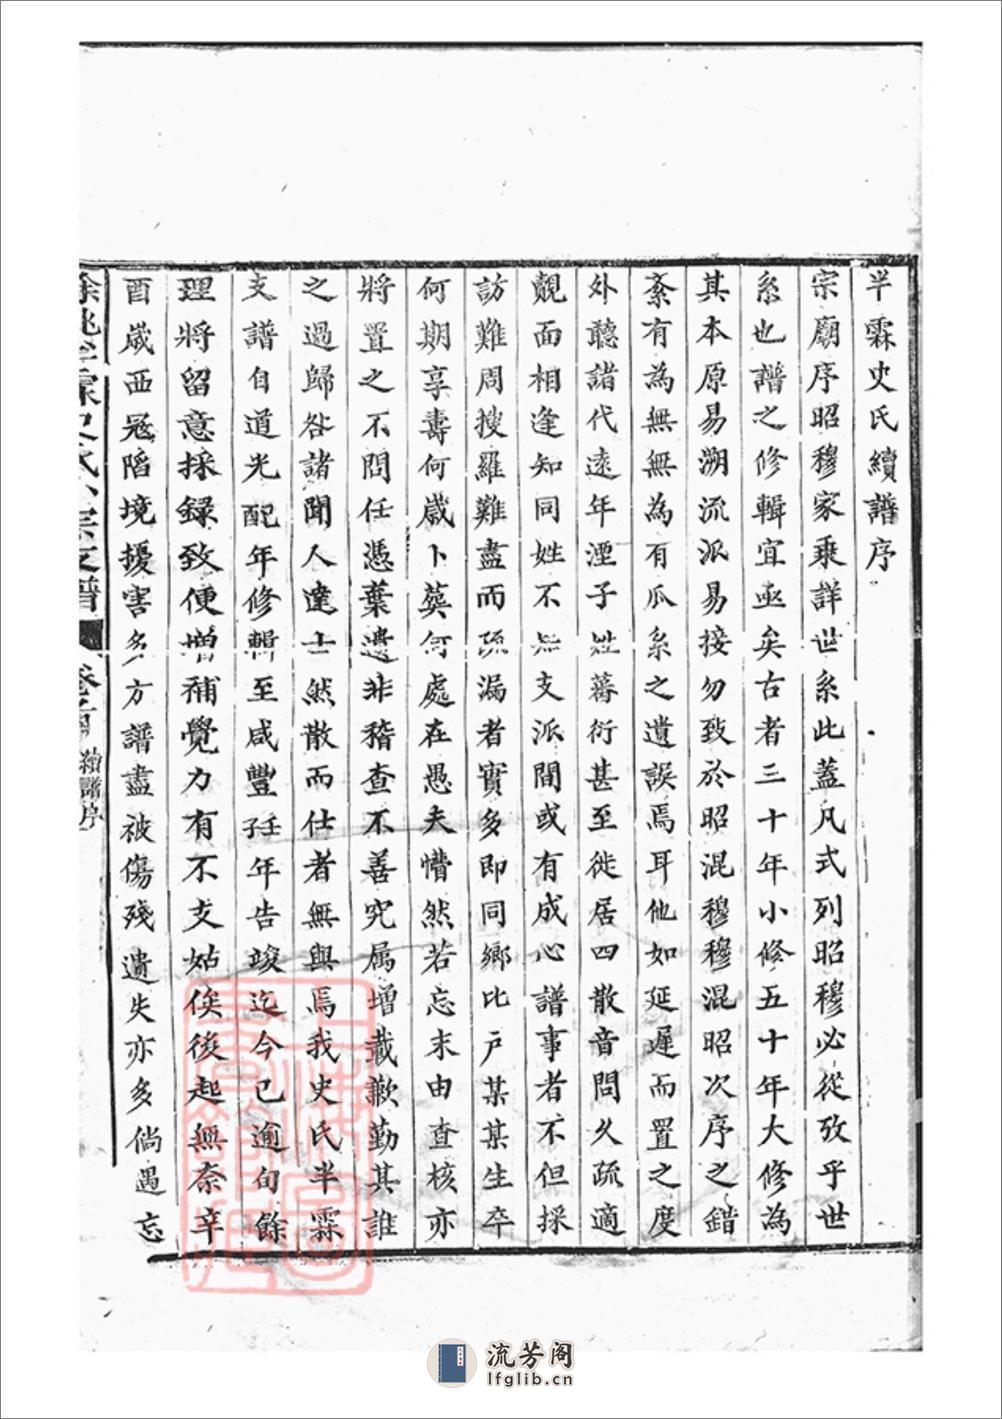 半霖史氏續譜序
宗廟序昭穆家乘詳世系此蓋凡式列昭穆必從攷乎世
系也譜之修輯宜亟矣古者三十年小修五十年大修為
其本原易溯流派易接勿致於昭混穆穆混昭次序之錯
紊有為無無為有瓜系之遺誤焉耳他如延遲而置之度
外聽諸代遠年湮子姓蕃衍甚至徙居四散音問久疏適
覿面相逢知同姓不知支派間或有成心譜事者不但採
訪難周搜羅難盡而疏漏者實多即同鄉比戶某某生卒
何期享壽何歲卜葬何處在愚夫懵然若忘末由查核亦
將置之不問任憑棄遺非稽查不善究属增載歉勤其誰
之過歸咎諸聞人達士然散而仕者無與焉我史氏半霖
支譜自道光配年修輯至咸豐壬年告竣迄今已逾旬餘
理將留意採録致便增補覺力有不支姑俟後起無奈辛
酉歲西冦陷境擾害多方譜盡被傷殘遺失亦多倘遇忘
餘姚半霖史氏小宗支譜 卷之首 續譜序
流芳阁
lfglib.cn